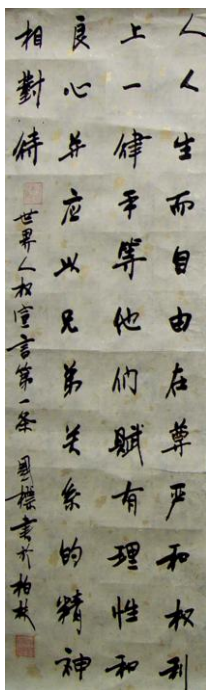 人人生而自由在尊严和权利
上一律平等他们赋有理性和
良心并应以兄弟关系的精神
相對待
世界人权宣言第一条 国標書於柏林